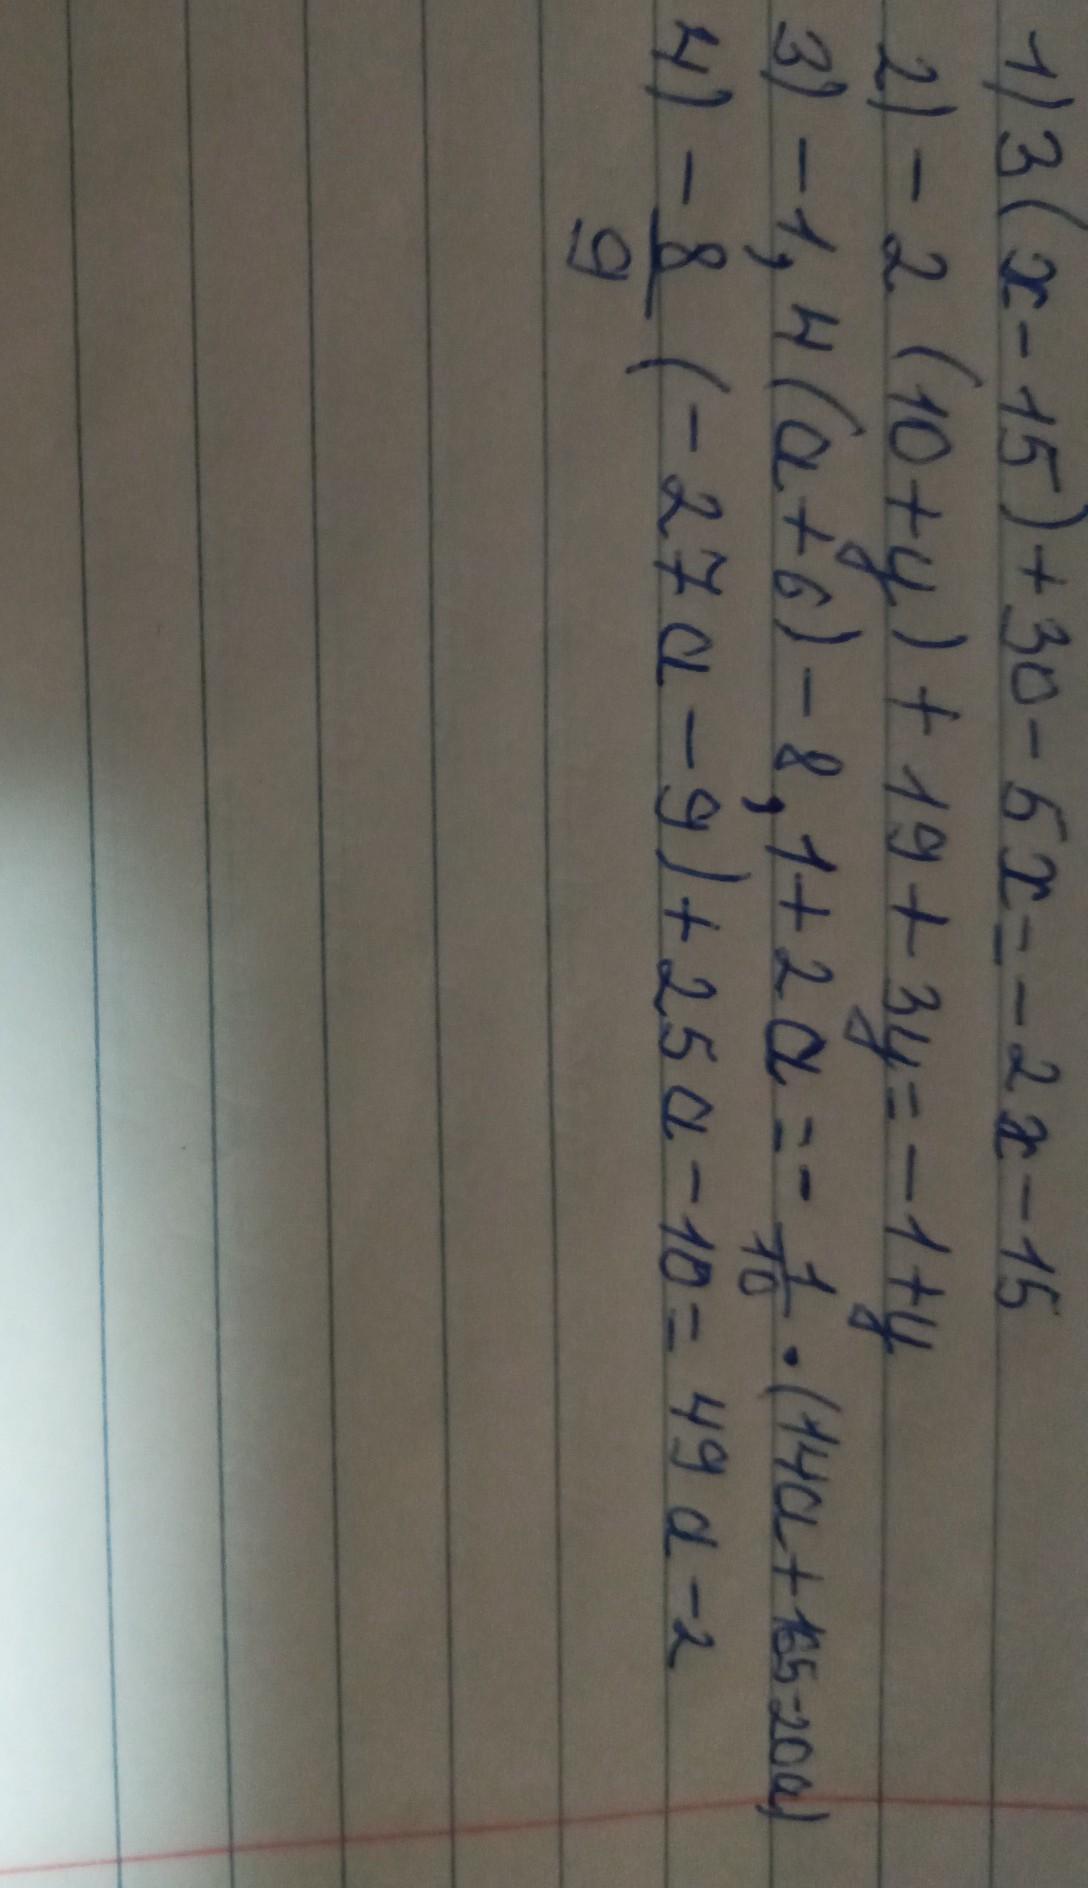 1) 3(x-15)+30-5x=-2x-15
2) -2(10+y)+19+3y=-1+y
3) -1,4(a+6)-8,1+2a=-1/10·(14a+165-20a)
4) -8/9(-27a-9)+25a-10=49a-2